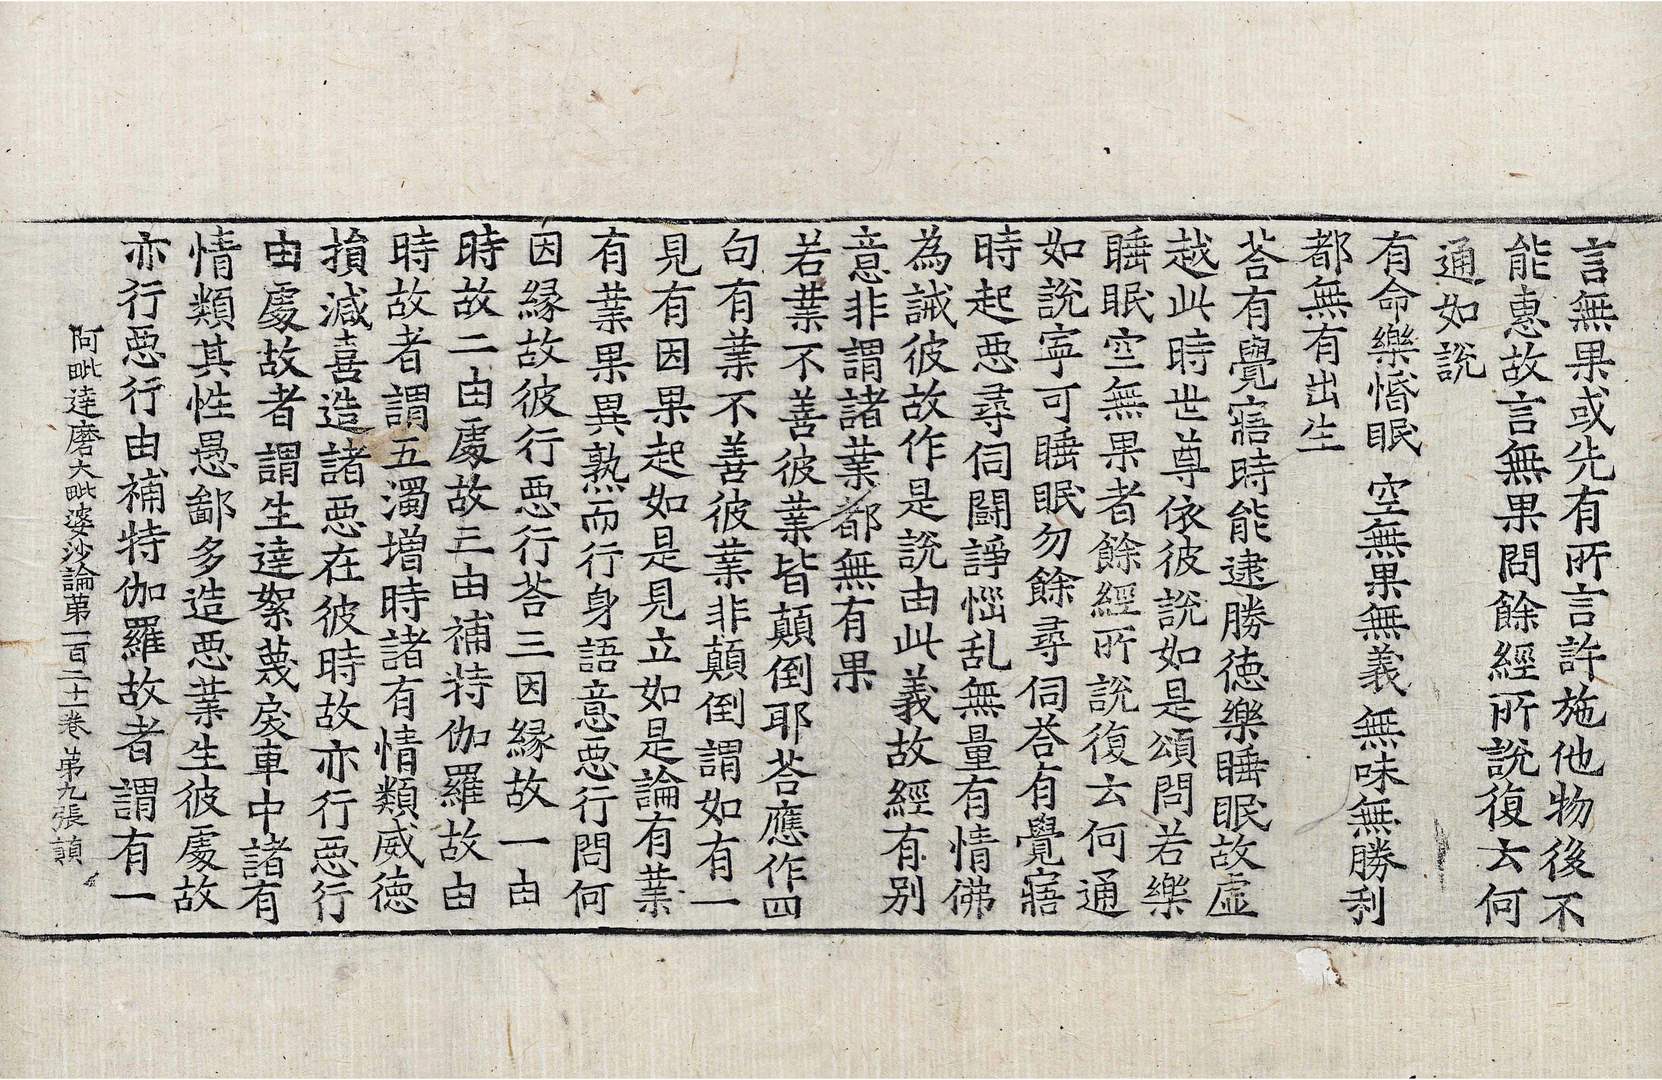 言無果或先有所言許施他物後不
能惠故言無果問餘經所說復云何
通如說
有命樂惛眠　空無果無義　無味無勝利
都無有出生
荅有覺寤時能逮勝德樂睡眠故虛
越此時世尊依彼說如是頌問若樂
睡眠空無果者餘經所說復云何通
如說寧可睡眠勿餘尋伺荅有覺寤
時起惡尋伺鬪諍惱乱無量有情佛
為誡彼故作是說由此義故經有別
意非謂諸業都無有果
若業不善彼業皆顛倒耶荅應作四
句有業不善彼業非顛倒謂如有一
見有因果起如是見立如是論有業
有業果異熟而行身語意惡行問何
因緣故彼行惡行荅三因緣故一由
時故二由處故三由補特伽羅故由
時故者謂五濁增時諸有情類威德
損減喜造諸惡在彼時故亦行惡行
由處故者謂生達絮蔑戾車中諸有
情類其性愚鄙多造惡業生彼處故
亦行惡行由補特伽羅故者謂有一
阿毗達磨大毗婆沙論第一百二十一卷　第九張　顗